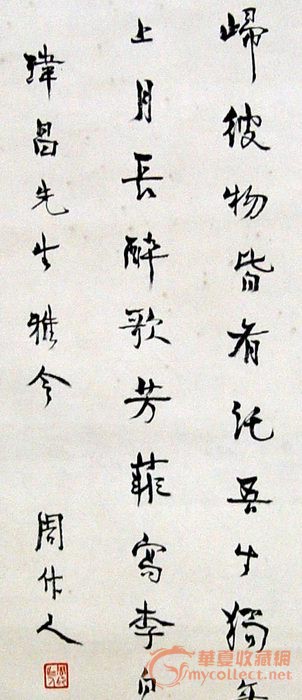 歸彼物皆有託吾生獨
上月長醉歌芳菲寫李白
瑋昌先生雅令
周作人
華夏收藏網
mycollect.com